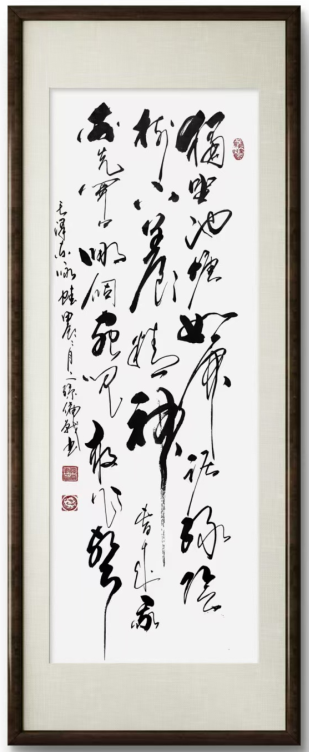 獨坐池塘如虎踞綠陰
樹下養精神春來我
不先開口哪個蟲兒敢作聲
毛澤東詠蛙甲辰二月二書